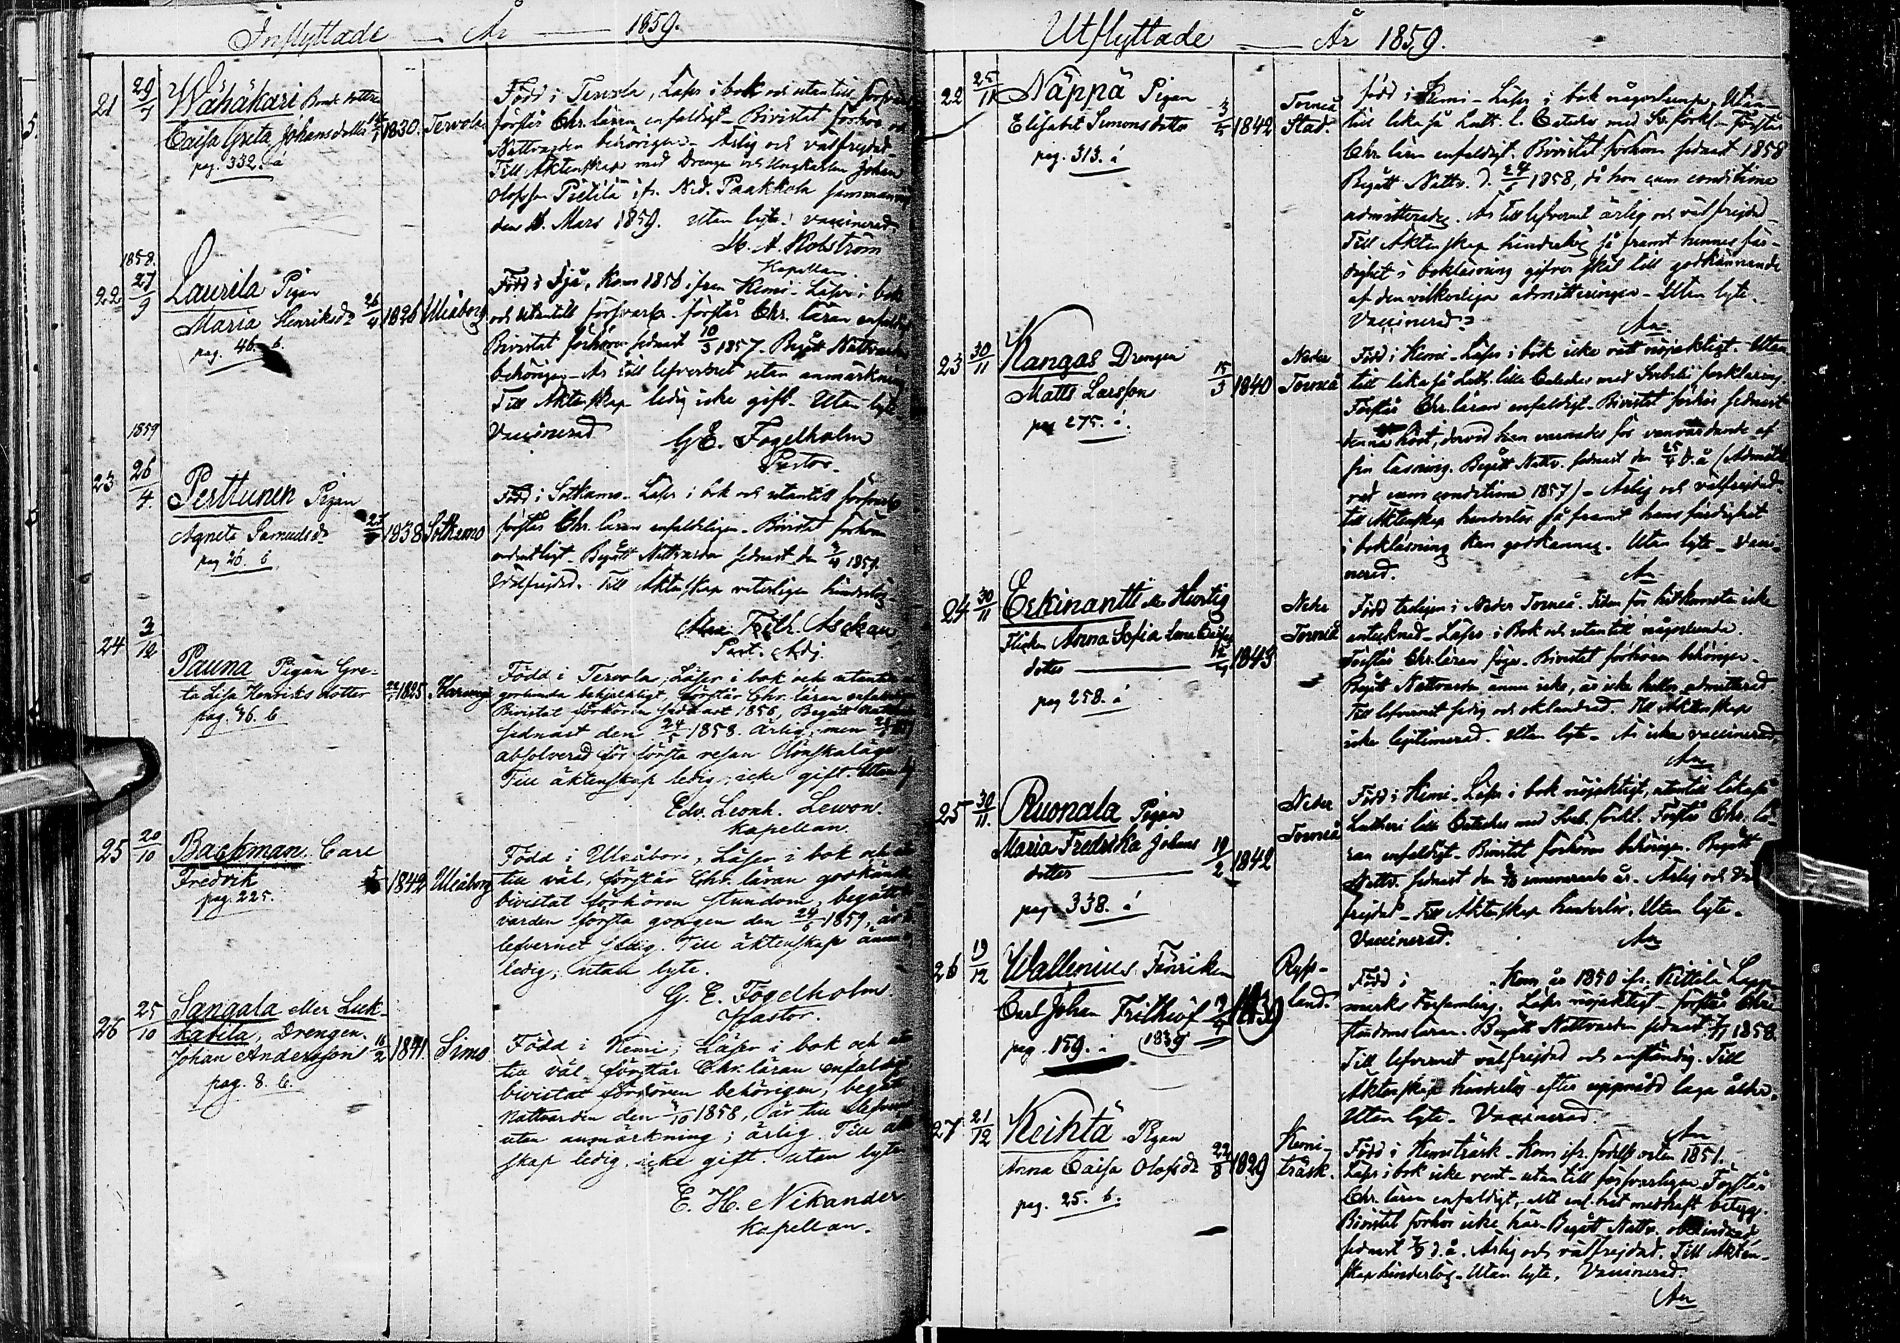 Inflyttade År 1859.
21 29/3 Wähäkari Bonde dotter
Caisa Greta Johansdotter 1830. Tervola
pag. 332. å
Född i Tervola, Läser i bok och utantill försvarl.
förstår Chr. läran enfaldigt. Bivistat förhör och
Nattvarden behörigen. Ärlig och välfrejdad.
Till Äktenskap med Drengen och Ungkarlen Johan
Olofsson Pietilä ifr. Ned. Paakkola
den Mars 1859. Utan lyte, vaccinerad
Kapellan.
1858.
22 27/9 Laurila Pigan
Maria Henriksdr 26/4 1826 Uleåborg
pag. 46. b.
Född i Ijå, kom 1856 ifrån Kemi. Läser i bok
och utantill försvarl. förstår Chr. läran enfaldigt
Bivistat förhören sednast 10/3 1857. Begått Nattvarden
behörigen. Är till lefvernet utan anmärkning
Till Äktenskap ledig icke gift. Utan lyte.
Vaccinerad
G. E. Fogelholm
Pastor.
1859
23 26/4 Perttunen Pigan
Agneta 1838 Sotkamo
pag 26. b
Född i Sotkamo. Läser i bok och utantill försvarl.
förstår Chr. läran enfaldeligen. Bivistat förhören
ordentligt. Begått Nattvarden sednast den 1859.
Välfrejdad. Till Äktenskap veterligen hinderslös
Past. Adj.
24 3/10 Pauna Pigan Gre-
ta Lisa Henriks dotter 1825. Karunge
pag. 46. b
Född i Tervola, Läser i bok och utantill nå-
gorlunda behjelpligt, förstår Chr. läran enfaldigt
Bivistat förhören sednast 1856, Begått Nattvarden
sednast den 24/5 1858. Ärlig, men
absolverad för första resan Lönskaläge
Till äktenskap ledig, icke gift. Utan lyte
Edv. Leonh. Lewon.
Kapellan.
25 20/10 Backman. Carl
Fredrik 1842 Uleåborg
pag. 225.
Född i Uleåborg, Läser i bok och utan-
till väl, förstår Chr. läran godkänd
bivistat förhören stundom, begått natt-
varden första gongen den 24/6 1859, är till
lefvernet sedig. Till äktenskap ännu
ledig, utan lyte.
G. E. Fogelholm.
Pastor.
26 25/10 Sangala eller Luk-
katila, Drengen
Johan Andersson 16/2 1841. Simo
pag. 8. b.
Född i Kemi; Läser i bok och utan-
till väl, förstår Chr. läran enfaldigt
bivistat förhören behörigen, begått
Nattvarden den 1858, är till lefvernet
utan anmärkning; ärlig. Till äkten-
skap ledig, icke gift. utan lyte
E. H. Nikander
Kapellan.
Utflyttade År 1859.
22 25/11 Näppä Pigan
Elisabet Simonsdotter 3/5 1842 Torneå Stad.
pag. 313. å
född i Kemi. Läser i bok någorlunda, Utan-
till lika så Luth. l. Cateches med Sv. förkl. Förstår
Chr. läran enfaldigt. Bivistat förhören sednast 1858
Begått Nattv. d. 24/5 1858, då hon cum conditione
admitterades. Är till lefvernet ärlig och välfrejdad.
Till Äktenskap hinderslös så framt hennes fär-
dighet i bokläsning gifver skäl till godkännande
af den vilkorliga admitteringen. Utan lyte.
Vaccinerad?
23 30/11 Kangas Drengen
Matts Larsson 15/3 1840 Neder Torneå
pag 275. å.
Född i Kemi. Läser i bok icke rätt nöjaktigt. Utan-
till lika så Luth. lilla Cateches med Svebelii förklaring.
Förstår Chr. läran enfaldigt. Bivistat förhör sednast
denna höst, dervid han varnades för vanvårdande af
sin läsning. Begått Nattv. sednast den 25/4 d. å. (Admitte-
rad cum conditione 1857). Ärlig och välfrejdad.
till Äktenskap hinderslös så framt hans färdighet
i bokläsning kan godkännas. Utan lyte. Vacci-
nerad.
24 30/11 Erkinantti eller Hurtig
Flickan Anna Sofia
dotter 1843 Neder Torneå
pag 258. å
Född troligen i Neder Torneå. Tiden för hitkomsten icke
antecknad. Läser i Bok och utantill någorlunda.
Förstår Chr. läran föga. Bivistat förhören behörigen.
Begått Nattvarden ännu icke, är icke heller admitterad
Till lefvernet sedig och oklandrad. Till Äktenskap
icke legitimerad. Utan lyte. Är icke vaccinerad.
25 30/11 Ruonala Pigan
Maria Fredrika Johans
dotter 19/2 1842 Neder Torneå
pag. 338. å
Född i Kemi. Läser i bok nöjaktigt, utantill lika så
Lutheri lilla Cateches med Sveb. förkl. Förstår Chr. lä-
ran enfaldigt. Bivistat förhören behörigen. Begått
Nattv. sednast den innevarande år. Ärlig och väl-
frejdad. Till Äktenskap hinderslös. Utan lyte.
Vaccinerad.
26 19/12 Wallenius Fänriken
Carl Johan Frithiof 19/4 1839 Ryss-
land.
pag. 159. å (1839)
Född i . Kom år 1850 ifr. Kittilä Lapp-
marks Församling. Läser nöjaktigt förstår Chri-
stendomsläran. Begått Nattvarden sednast 1858.
Till lefvernet välfrejdad och anständig. Till
Äktenskap hinderslös efter uppnådd laga ålder.
Utan lyte. Vaccinerad.
27 21/12 Keihtä Pigan
Anna Caisa Olofsdr 22/8 1829 Kemi
träsk.
pag. 25. b.
Född i Kemiträsk. Kom ifr. födelse orten 1851.
Läser i bok icke rent. utantill försvarligen. Förstår
Chr. läran enfaldigt, allt enl. hit medhaft betyg.
Bivistat förhör icke här. Begått Nattv.
sednast d. å. Ärlig och välfrejdad. Till Äkten-
skap hinderslös. Utan lyte. Vaccinerad.